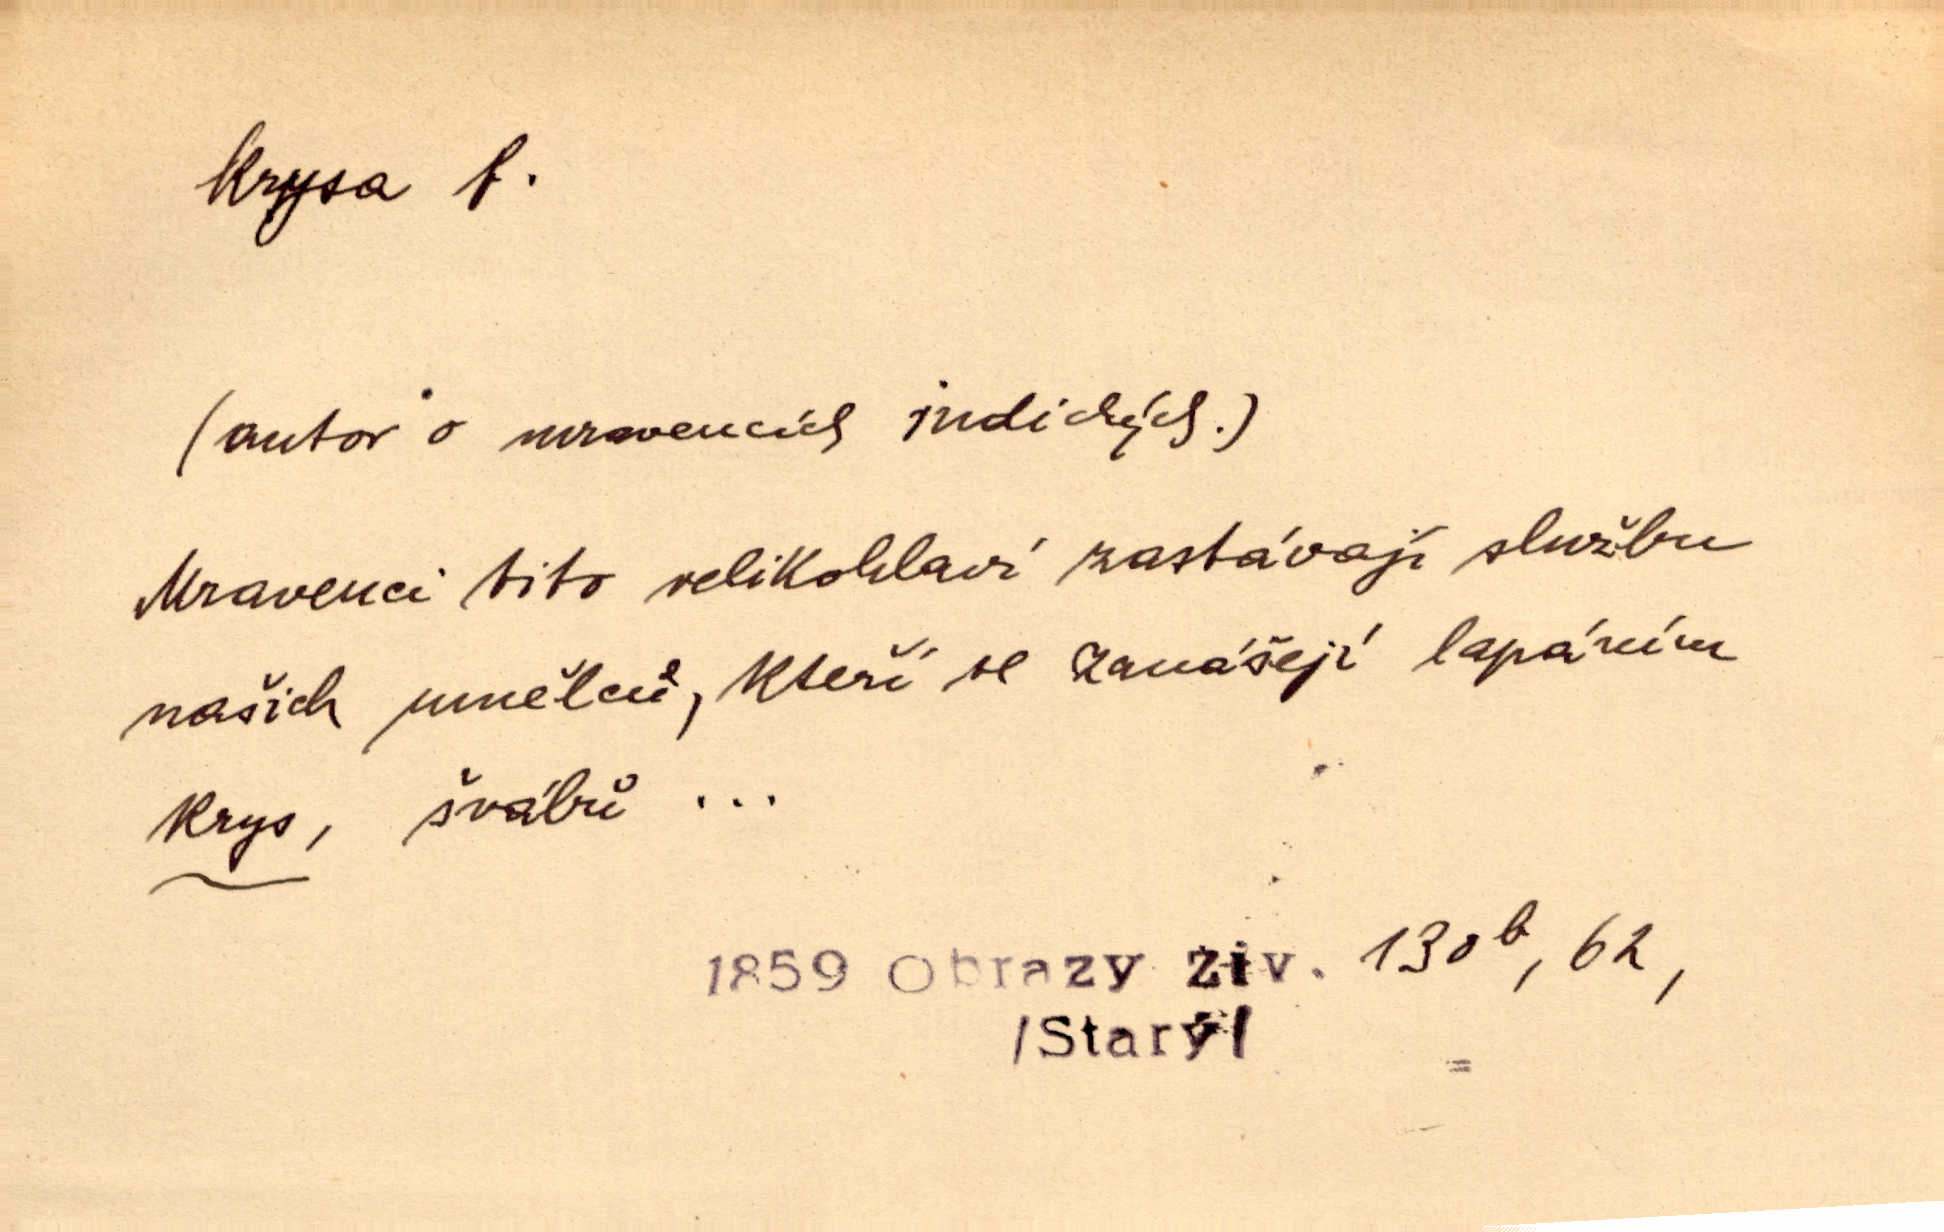 krysa f.
(autor o mravencích indických.)
Mravenci tito velikohlaví zastávají službu
našich umělců, kteří se zanášejí lapáním
krys, švábů ...
1859 Obrazy živ. 130b, 62,
/Starý/